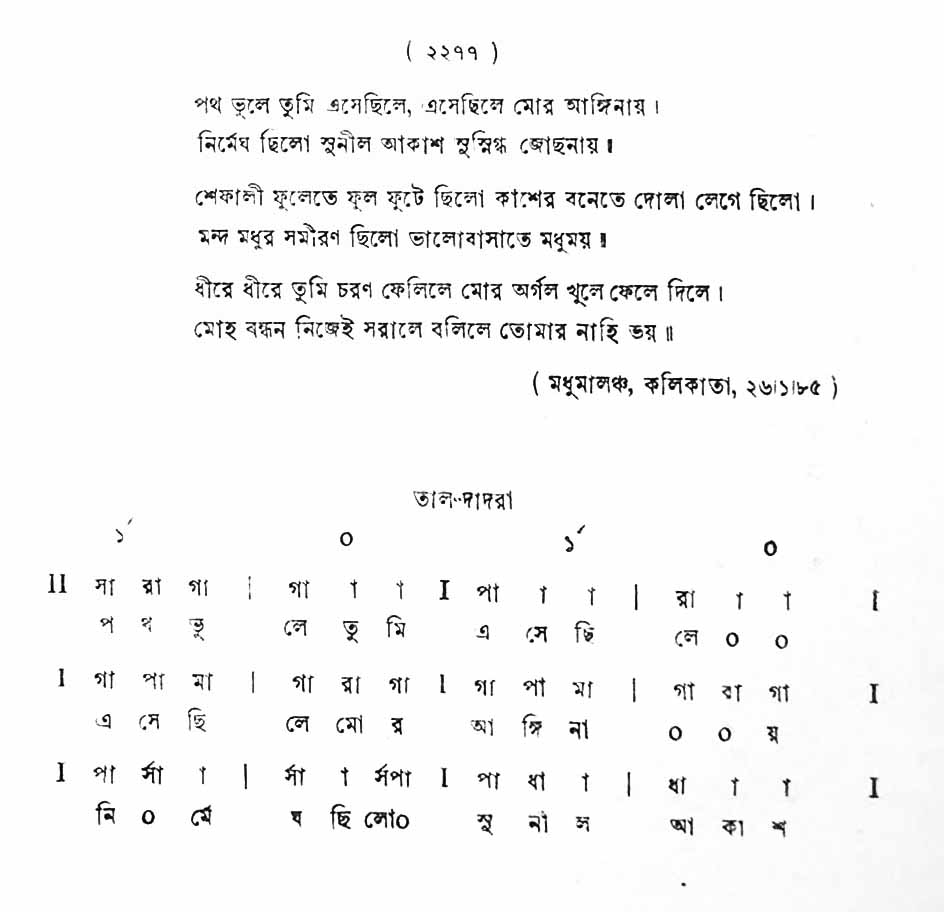 ( ২২৭৭ )
পথ ভুলে তুমি এসেছিলে, এসেছিলে মোর আঙ্গিনায় ।
নির্মেঘ ছিলো সুনীল আকাশ সুস্নিগ্ধ জোছনায় ।
শেফালী ফুলেতে ফুল ফুটে ছিলো কাশের বনেতে দোলা লেগে ছিলো ।
মন্দ মধুর সমীরণ ছিলো ভালোবাসাতে মধুময় ।
ধীরে ধীরে তুমি চরণ ফেলিলে মোর অর্গল খুলে ফেলে দিলে ।
মোহ বন্ধন নিজেই সরালে বলিলে তোমার নাহি ভয় ॥
( মধুমালঞ্চ, কলিকাতা, ২৬।১।৮৫ )
তাল-দাদরা
১´ ০ ১´ ০
II সা রা গা | গা া া I পা া া | রা া া I
প থ ভু লে তু মি এ সে ছি লে ০ ০
I গা পা মা | গা রা গা I গা পা মা | গা রা গা I
এ সে ছি লে মো র আ ঙ্গি না ০ ০ য়
I পা র্সা া | র্সা া র্সপা I পা ধা া | ধা া া I
নি ০ র্মে ঘ ছি লো০ সু নী ল আ কা শ